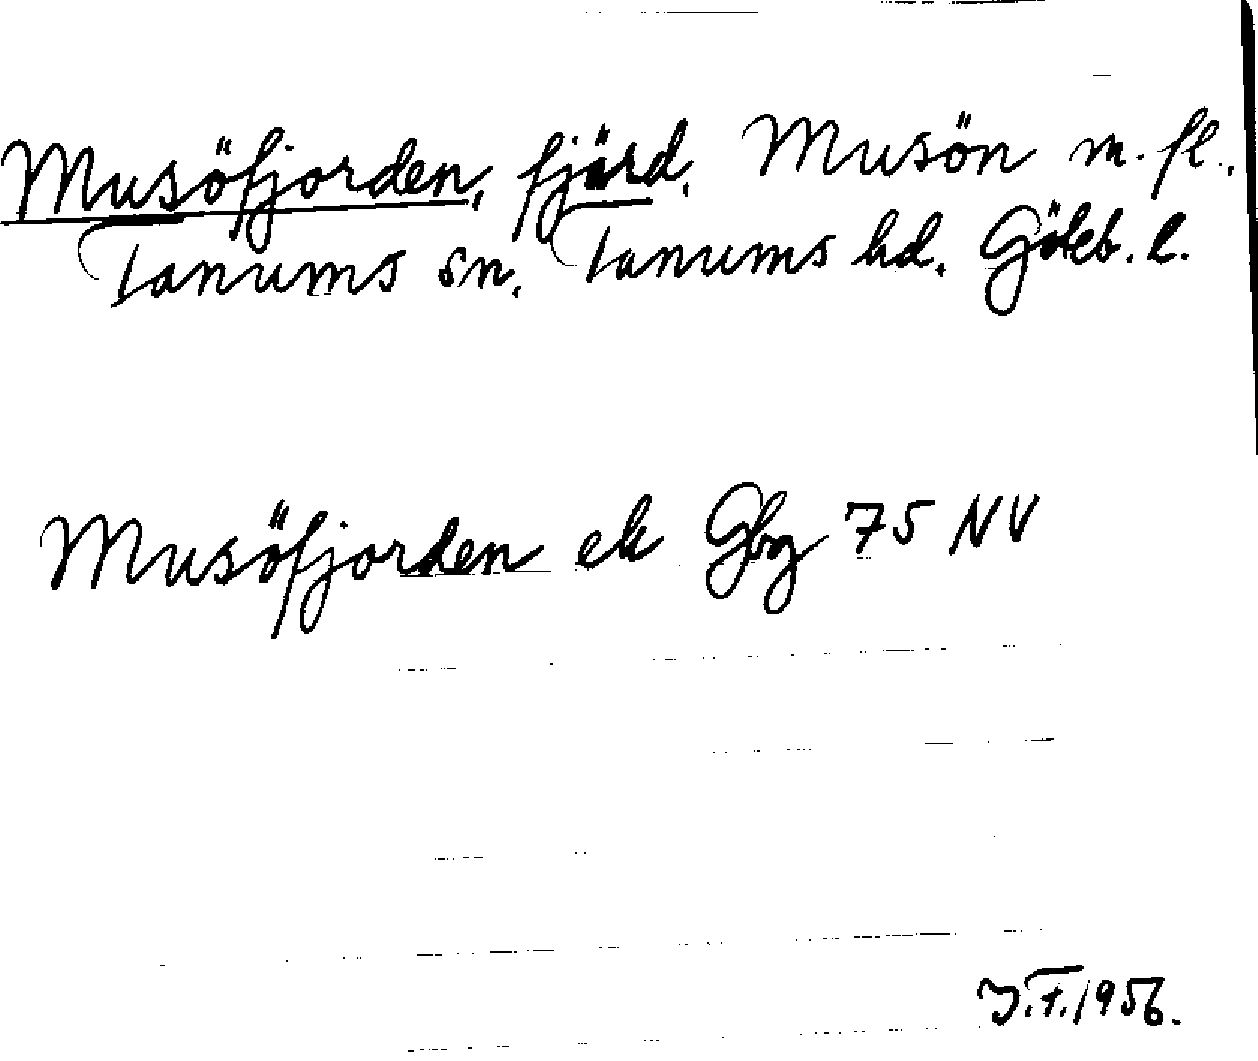 Musöfjorden, fjärd, Musön m. fl.,
Tanums sn, Tanums hd, Göteb. l.
Musöfjorden ek Gbg 75 NV
J.F. 1956.